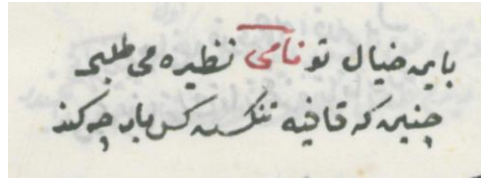 باین خیال تو نامی نظیره می طلبی
چنین که قافیه تنگست کس بیان چه کند